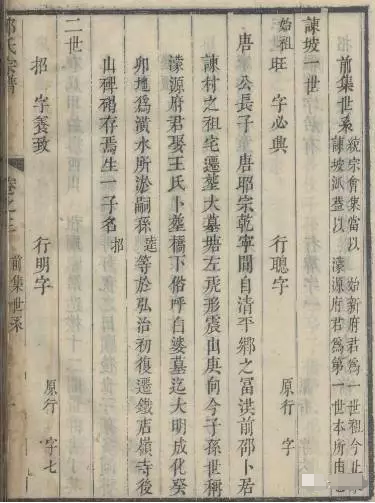 前集世系
統宗會集當以 始新府君爲一世祖今止
諫坡派 以 濛源府君爲第一世本所由
諫坡一世
始祖旺 字必興 行聰字 原行 字
唐 公長子 唐耶宗乾寧間自清平鄉之冨洪前邵卜居
諫村之祖宅遷塟大墓塘左 形震山庚向今子孫世稱
濛源府君娶王氏卜塟橋下俗呼白婆墓迄大明成化癸
卯地爲潢水所淤嗣孫逵等於弘治初復遷鐵店嶺寺後
山碑碣存焉生一子名招
二世
招 字養致 行明字 原行 字七
氏宗譜 卷之 前集世系